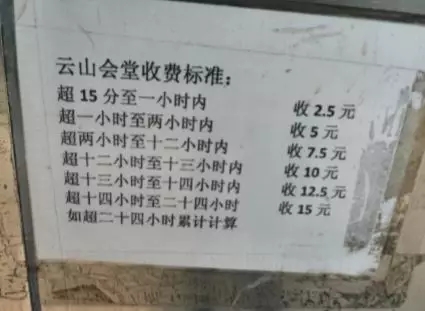 云山会堂收费标准：
超 15 分至一小时内 收 2.5 元
超一小时至两小时内 收 5 元
超两小时至十二小时内 收 7.5 元
超十二小时至十三小时内 收 10 元
超十三小时至十四小时内 收 12.5 元
超十四小时至二十四小时 收 15 元
如超二十四小时累计计算